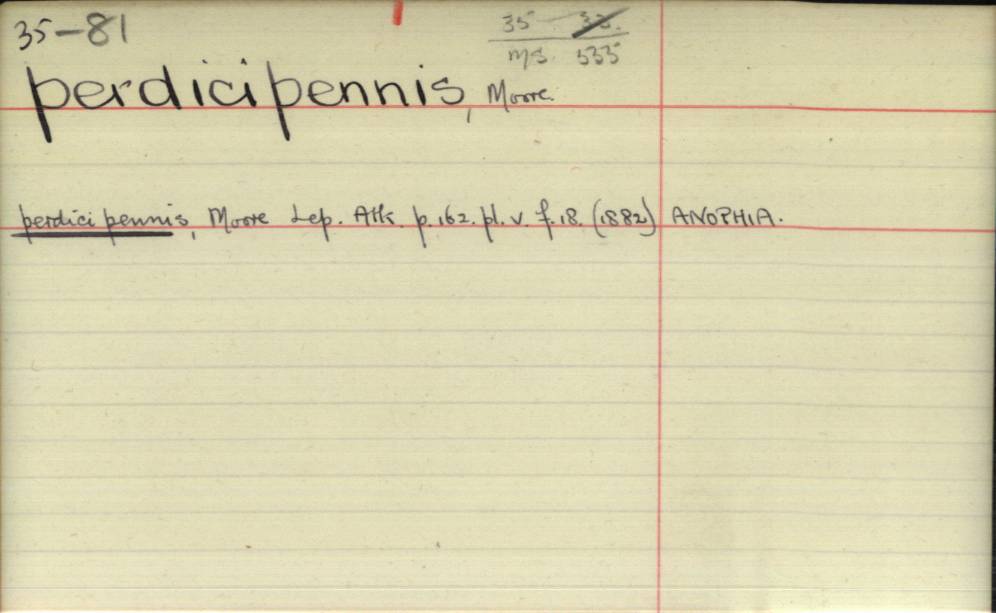 35-81
35
ms. 535
perdicipennis, Moore.
perdicipennis, Moore Lep. Atk. p.162. pl. v. f.18. (1882) ANOPHIA.